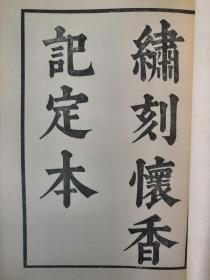 繡刻懷香
記定本